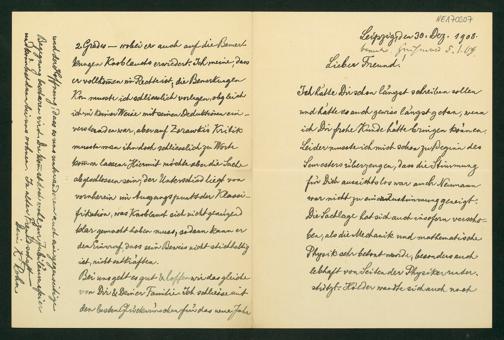 NEA70007
Leipzig, den 30. Dez. 1908.
Lieber Freund!
Ich hätte Dir schon längst schreiben sollen
und hätte es auch gewiss längst getan, wenn
ich Dir frohe Kunde hätte bringen können.
Leider musste ich mich schon zu Beginn des
Semesters überzeugen, dass die Stimmung
für Dich aussichtslos war auch Neumann
war nicht zu einer
Die Sachlage hat sich auch insofern verscho-
ben, als die Mechanik und mathematische
Physik sehr betont wurde, besonders auch
lebhaft von Seiten der Physiker unter-
stützt. Hölder wandte sich auch noch
2. Grades — wobei er auch auf die Bemerk
ungen Knoblauchs erwidert. Ich meine, dass
er vollkommen im Recht ist, die Bemerkungen
Kn. musste ich schliesslich vorlegen, obgleich
ich in keiner Weise mit seinen Deduktionen ein-
verstanden war, aber auf Zorawskis Kritik
musste man ihn doch schliesslich zu Worte
kommen lassen. Hiermit möchte aber die Sache
abgeschlossen sein, der Unterschied liegt von
vornherein im Ausgangspunkt der Klassi-
fikation, was Knoblauch sich nicht genügend
klar gemacht haben muss, sodann kann er
den Einwurf, dass sein Beweis nicht stichhaltig
ist, nicht entkräften.
Bei uns geht es gut & hoffen wir das gleiche
von Dir & Deiner Familie. Ich schliesse mit
den besten Glückwünschen für das neue Jahr
und der Hoffnung, dass es uns